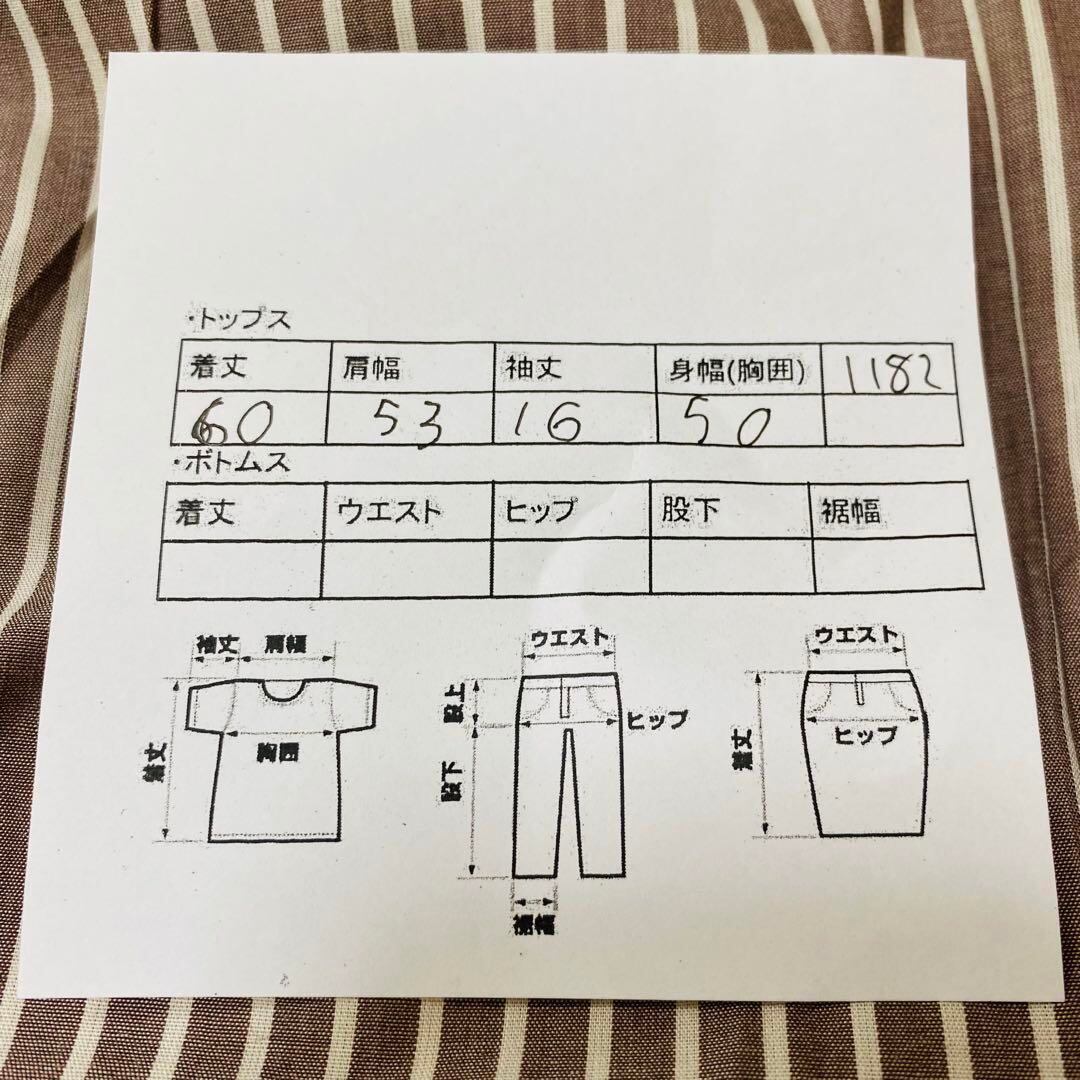 ・トップス
着丈 肩幅 袖丈 身幅(胸囲) 1182
60 53 16 50
・ボトムス
着丈 ウエスト ヒップ 股下 裾幅
袖丈 肩幅
着丈
胸囲
ウエスト
股上
ヒップ
股下
裾幅
ウエスト
着丈
ヒップ